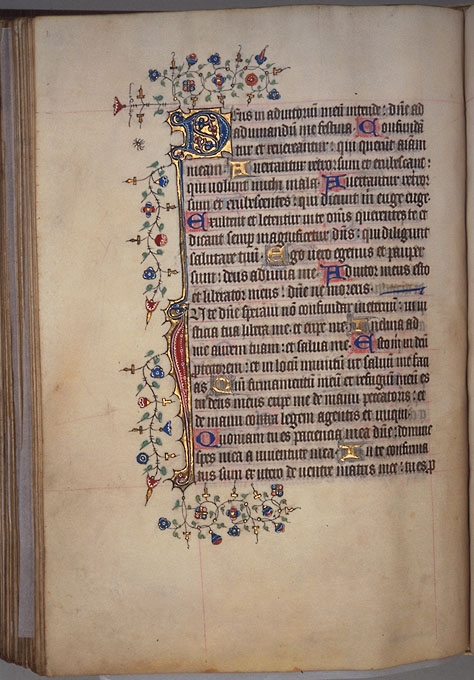 Deus in adiutoriū meū intende: dñe ad
adiuuandū me festina. Confundā
tur et reuereantur: qui querūt aīam
meam. Auertantur retrorsum et erubescant:
qui uolunt michi mala. Auertantur retror
sum et erubescentes: qui dicunt m̄ euge euge.
Exultent et letentur in te om̄s querentes te et
dicant semp̄ magnificetur dn̄s: qui diligunt
salutare tuū. Ego uero egenus et pauper
sum: deus adiuua me. Adiutor meus esto
et liberator meus: dñe ne moreris.
In te dñe speraui nō confundar ī eternū: in iu
sticia tua libera me et eripe me. Inclina ad
me aurem tuam: et salua me. Esto m̄ in deū
ptectorem: et in locū munitū ut saluū me faci
as. Qm̄ firmamentū meū et refugiū meū es
tu deus meus eripe me de manu peccatoris: et
de manu contra legem agentis et iniqui.
Quoniam tu es paciencia mea dñe: domine
spes mea a iuuentute mea. In te confirma
tus sum ex utero de uentre matris mee: tu es p